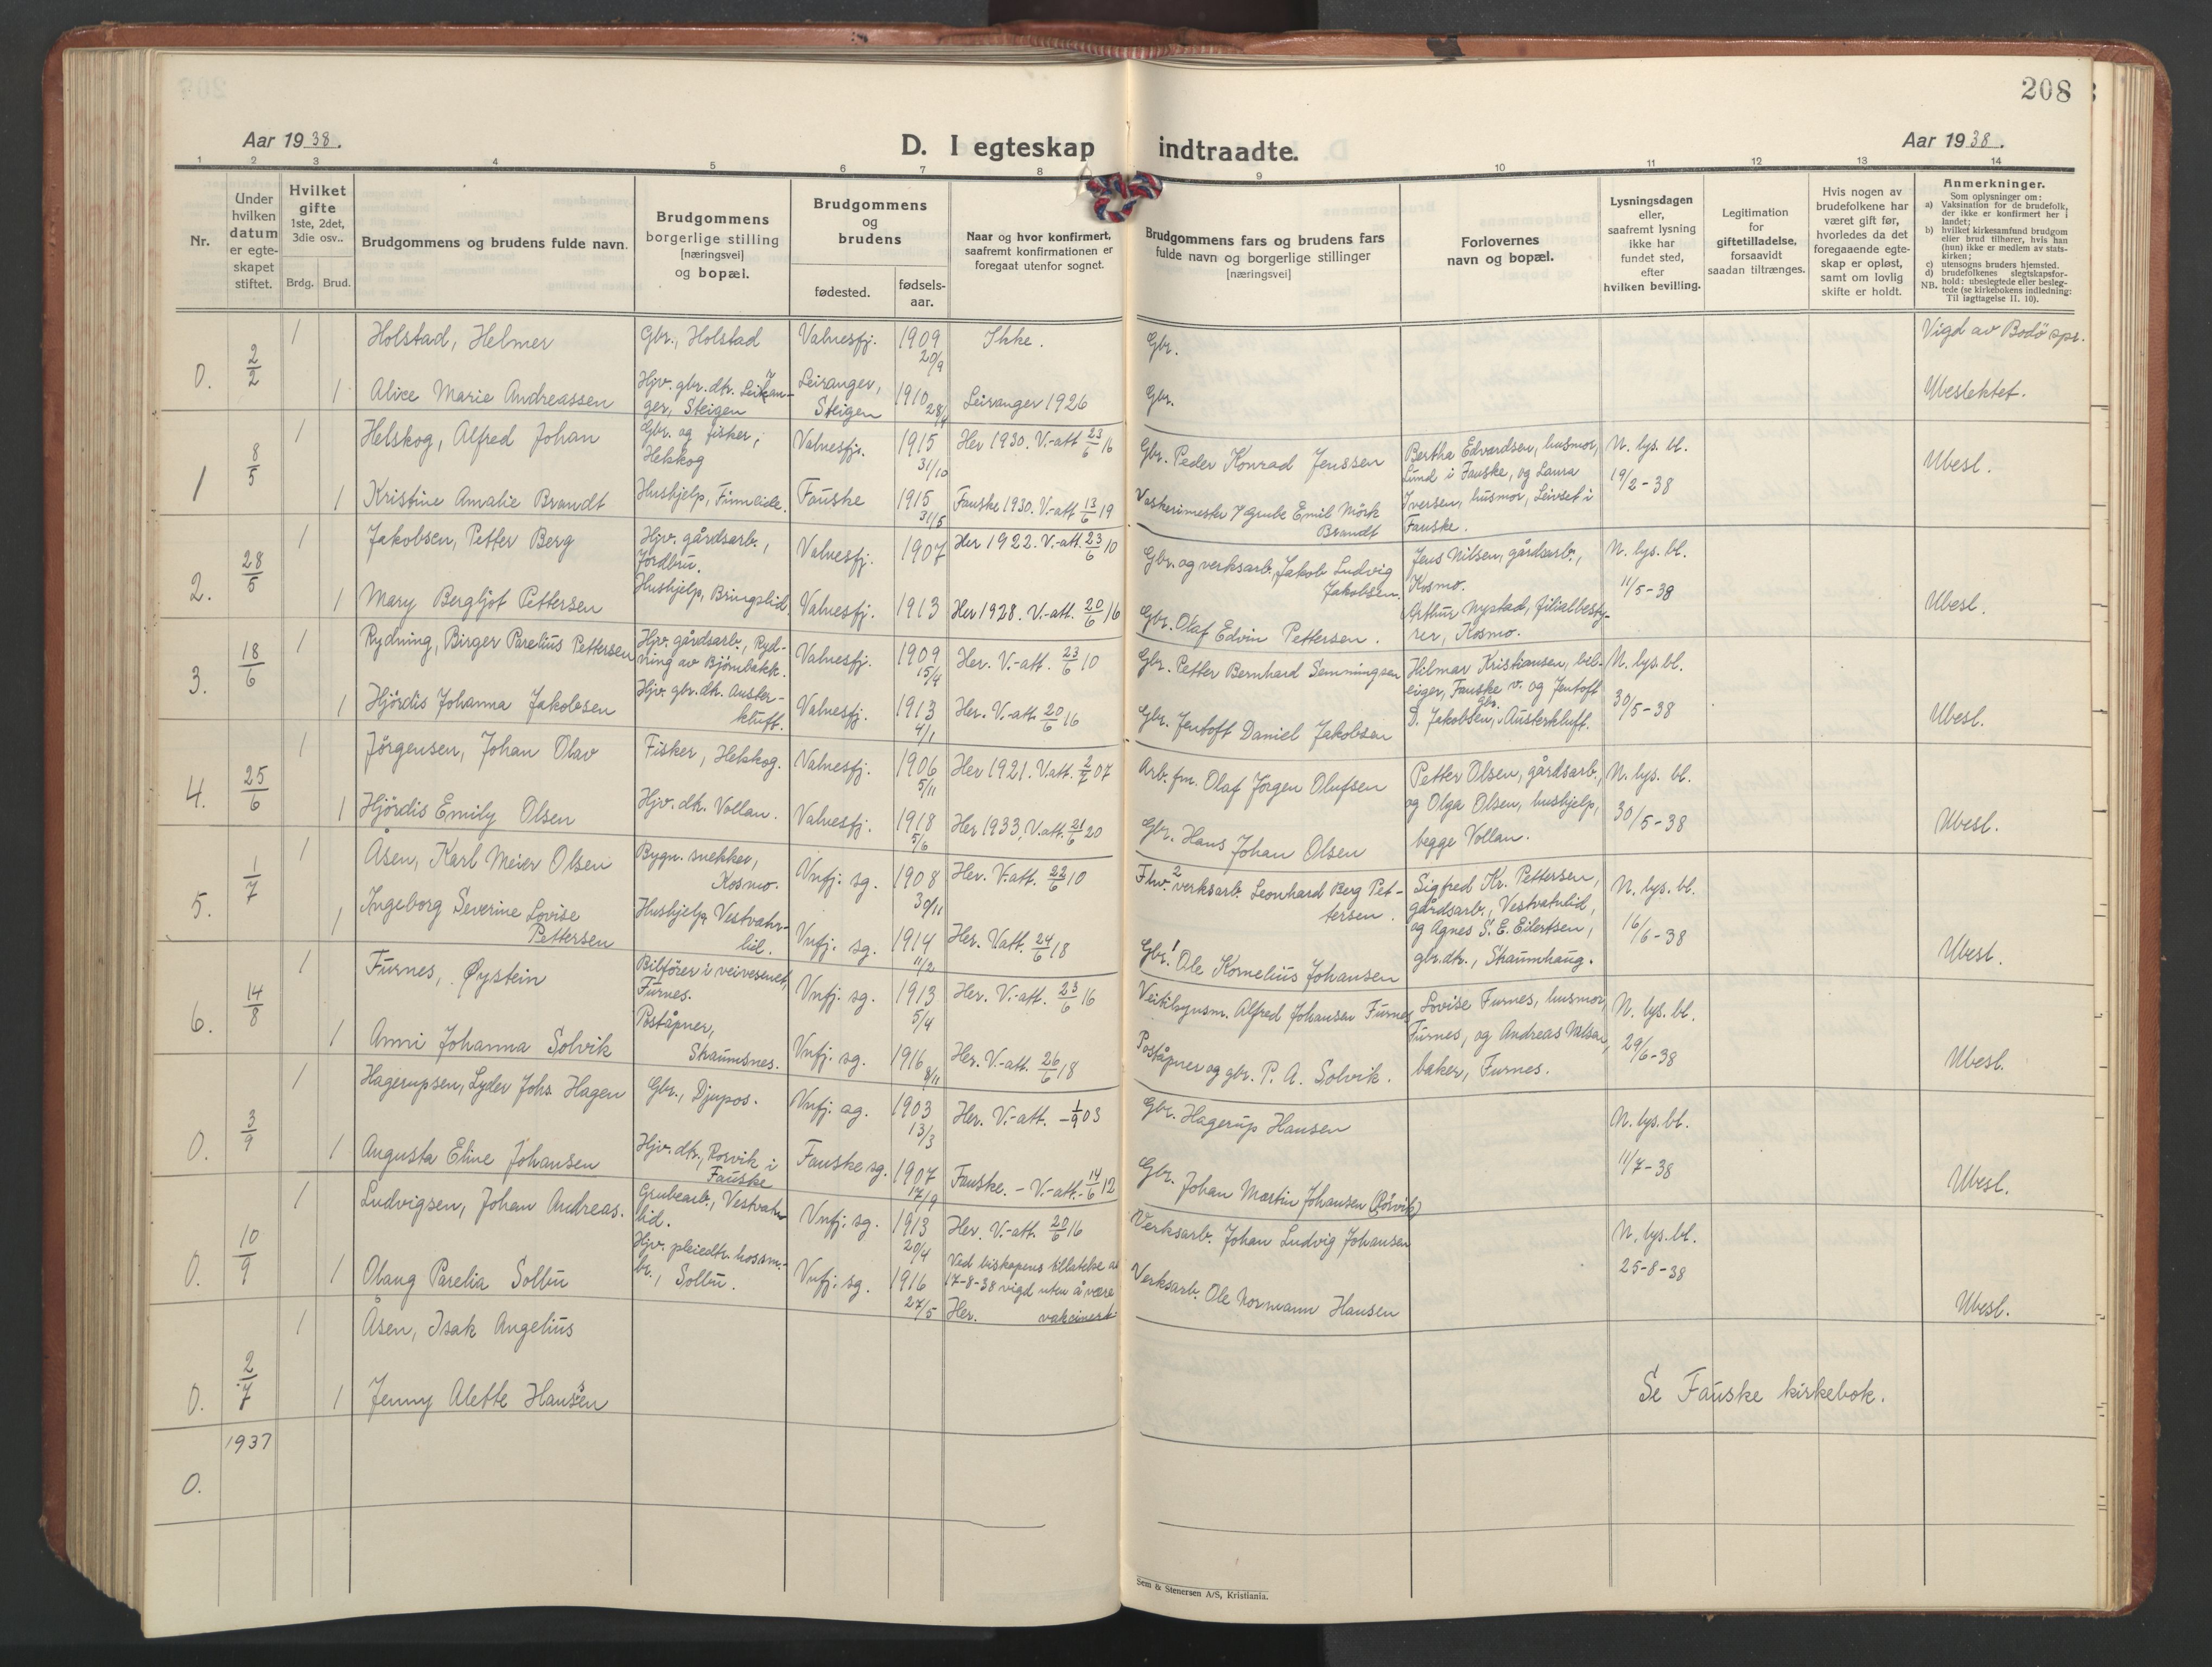 208
Aar 1938.
D. I egteskap indtraadte.
Aar 1938.
1 2 3 4 5 6 7 8 9 10 11 12 13 14
Nr.
Under
hvilken
datum
er egte-
skapet
stiftet.
Hvilket
gifte
1ste, 2det,
3die osv..
Brdg. Brud.
Brudgommens og brudens fulde navn.
Brudgommens
borgerlige stilling
[næringsvei]
og bopæl.
Brudgommens
og
brudens
fødested.
fødsels-
aar.
Naar og hvor konfirmert,
saafremt konfirmationen er
foregaat utenfor sognet.
Brudgommens fars og brudens fars
fulde navn og borgerlige stillinger
[næringsvei]
Forlovernes
navn og bopæl.
Lysningsdagen
eller,
saafremt lysning
ikke har
fundet sted,
efter
hvilken bevilling.
Legitimation
for
giftetilladelse,
forsaavidt
saadan tiltrænges.
Hvis nogen av
brudefolkene har
været gift før,
hvorledes da det
foregaaende egte-
skap er opløst,
samt om lovlig
skifte er holdt.
Anmerkninger.
Som oplysninger om:
a) Vaksination for de brudefolk,
der ikke er konfirmert her i
landet;
b) hvilket kirkesamfund brudgom
eller brud tilhører, hvis han
(hun) ikke er medlem av stats-
kirken;
c) utensogns bruders hjemsted.
d) brudefolkenes slegtskapsfor-
hold: ubeslegtede eller besleg-
NB. tede (se kirkebokens indledning:
Til iagttagelse II. 10).
0. 2/2
1 Holstad, Helmer
Gbr., Holstad
Valnesfj. 1909 20/9
Ikke.
Gbr.
Vigd av Bodö spr.
1 Alice Marie Andreassen
Hjv. gbr. dtr. Leiran-
ger, Steigen
Leiranger,
Steigen
1910
Leiranger 1926
Gbr.
Ubeslektet.
1 8/5
1 Helskog, Alfred Johan
Gbr. og fisker,
Helskog
Valnesfj. 1915 31/10
Her 1930. V.-att 23/6 16
Gbr. Peder Konrad Jenssen
Bertha Edvardsen, husmor,
Lund i Fauske, og Laura
Iversen, husmor, Leivset i
Fauske.
N. lys. bl.
19/2-38
Ubesl.
1 Kristine Amalie Brandt
Hushjelp, Finneide.
Fauske 1915 31/5
Fauske 1930. V.-att 13/6 19
Vaskerimester Emil Mörk
Brandt
2. 28/5
1 Jakobsen, Petter Berg
Hjv. gårdsarb.,
Jordbru.
Valnesfj. 1907
Her 1922. V.-att. 23/6 10
Gbr. og verksarb. Jakob Ludvig
Jakobsen.
Jens Nilsen, gårdsarb.,
Kosmo.
Arthur Nystad, filialbesty-
rer, Kosmo.
N. lys. bl.
11/5-38
Ubesl.
1 Mary Bergljot Pettersen
Hushjelp, Bringslid.
Valnesfj. 1913
Her 1928. V.-att. 20/6 16
Gbr. Olaf Edvin Pettersen.
3. 18/6
1 Rydning, Birger Parelius Pettersen
Hjv. gårdsarb., Ryd-
ning av Bjørnbakk.
Valnesfj. 1909 15/4
Her. V.-att. 23/6 10
Gbr. Petter Bernhard Semmingsen
Hilmar Kristiansen, bil-
eiger, Fauske v. og Jentoft
D. Jakobsen, gbr. Austerkluft.
N. lys. bl.
30/5-38
Ubesl.
1 Hjördis Johanna Jakobsen
Hjv. gbr. dtr. Auster-
kluft.
Valnesfj. 1913 4/1
Her. V.-att. 20/6 16
Gbr. Jentoft Daniel Jakobsen
4. 25/6
1 Jörgensen, Johan Olav
Fisker, Helskog.
Valnesfj. 1906 5/11
Her 1921. V.att. 2/7 07
Arb. fm. Olaf Jörgen Olufsen
Petter Olsen, gårdsarb.,
og Olga Olsen, hushjelp,
begge Vollan.
N. lys. bl.
30/5-38
Ubesl.
1 Hjördis Emily Olsen
Hjv. dtr. Vollan.
Valnesfj. 1918 5/6
Her 1933, V.att. 21/6 20
Gbr. Hans Johan Olsen
5. 1/7
1 Åsen, Karl Meier Olsen
Bygn. snekker,
Kosmo.
Vnfj. sg. 1908 30/11
Her. V.att. 22/6 10
2 verksarb. Leonhard Berg Pet-
tersen.
Sigfred Kr. Pettersen,
gårdsarb., Vestvatnlid,
og Agnes S. E. Eilertsen,
gbr.dtr., Skaumhaug.
N. lys. bl.
16/6-38
Ubesl.
1 Ingeborg Severine Lovise
Pettersen
Hushjelp, Vestvatn-
lid.
Vnfj. sg. 1914 11/2
Her. V.att. 24/6 18
Gbr. 1 Ole Kornelius Johansen
6. 14/8
1 Furnes, Øystein
Bilfører i veivesenet,
Furnes.
Vnfj. sg. 1913 5/4
Her. V.-att. 23/6 16
Veitilsynsm. Alfred Johansen Furnes
Lovise Furnes, husmor,
Furnes, og Andreas Nilsen,
baker, Furnes.
N. lys. bl.
29/6-38
Ubesl.
1 Anni Johanna Solvik
Poståpner,
Skaumsnes.
Vnfj. sg. 1916 8/11
Her. V.-att. 26/6 18
Poståpner og gbr. P. A. Solvik.
0. 3/9
1 Hagerupsen, Lyder Johs. Hagen
Gbr., Djupos.
Vnfj. sg. 1903 13/3
Her. V.-att. - 1/9 03
Gbr. Hagerup Hansen
N. lys. bl.
11/7-38
Ubesl.
1 Augusta Eline Johansen
Hjv. dtr., Rosvik i
Fauske
Fauske sg. 1907 17/9
Fauske. - V.-att.- 14/6 12
Gbr. Johan Martin Johansen (Rörvik)
0. 10/9
1 Ludvigsen, Johan Andreas.
Grubearb., Vestvatn-
lid.
Vnfj. sg. 1913 20/4
Her. V.-att 20/6 16
Verksarb. Johan Ludvig Johansen
N. lys. bl.
25-8-38
Ubesl.
1 Olaug Parelia Solbu
Hjv. pleiedtr. hos sm.-
br., Solbu.
Vnfj. sg. 1916 27/5
Ved biskopens tillatelse av
17-8-38 vigd uten å være
Her. vaksinert.
Verksarb. Ole Normann Hansen
0. 2/7 1937
1 Åsen, Isak Angelius
1 Jenny Alette Hansen
Se Fauske kirkebok.
0.
Sem & Stenersen A/S, Kristiania.